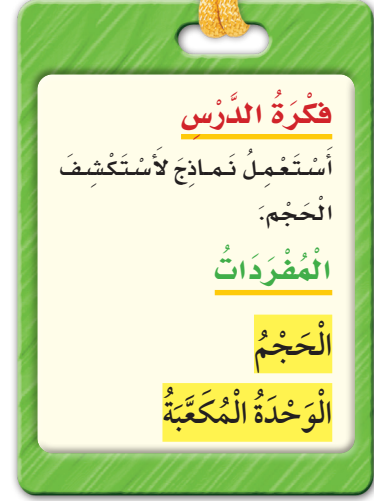 فِكْرَةُ الدَّرْسِ
أَسْتَعْمِلُ نَمـاذِجَ لأَسْتَكْشِفَ
الْحَجْمَ.
الْمُفْرَدَاتُ
الْحَجْمُ
الْوَحْدَةُ الْمُكَعَّبَةُ